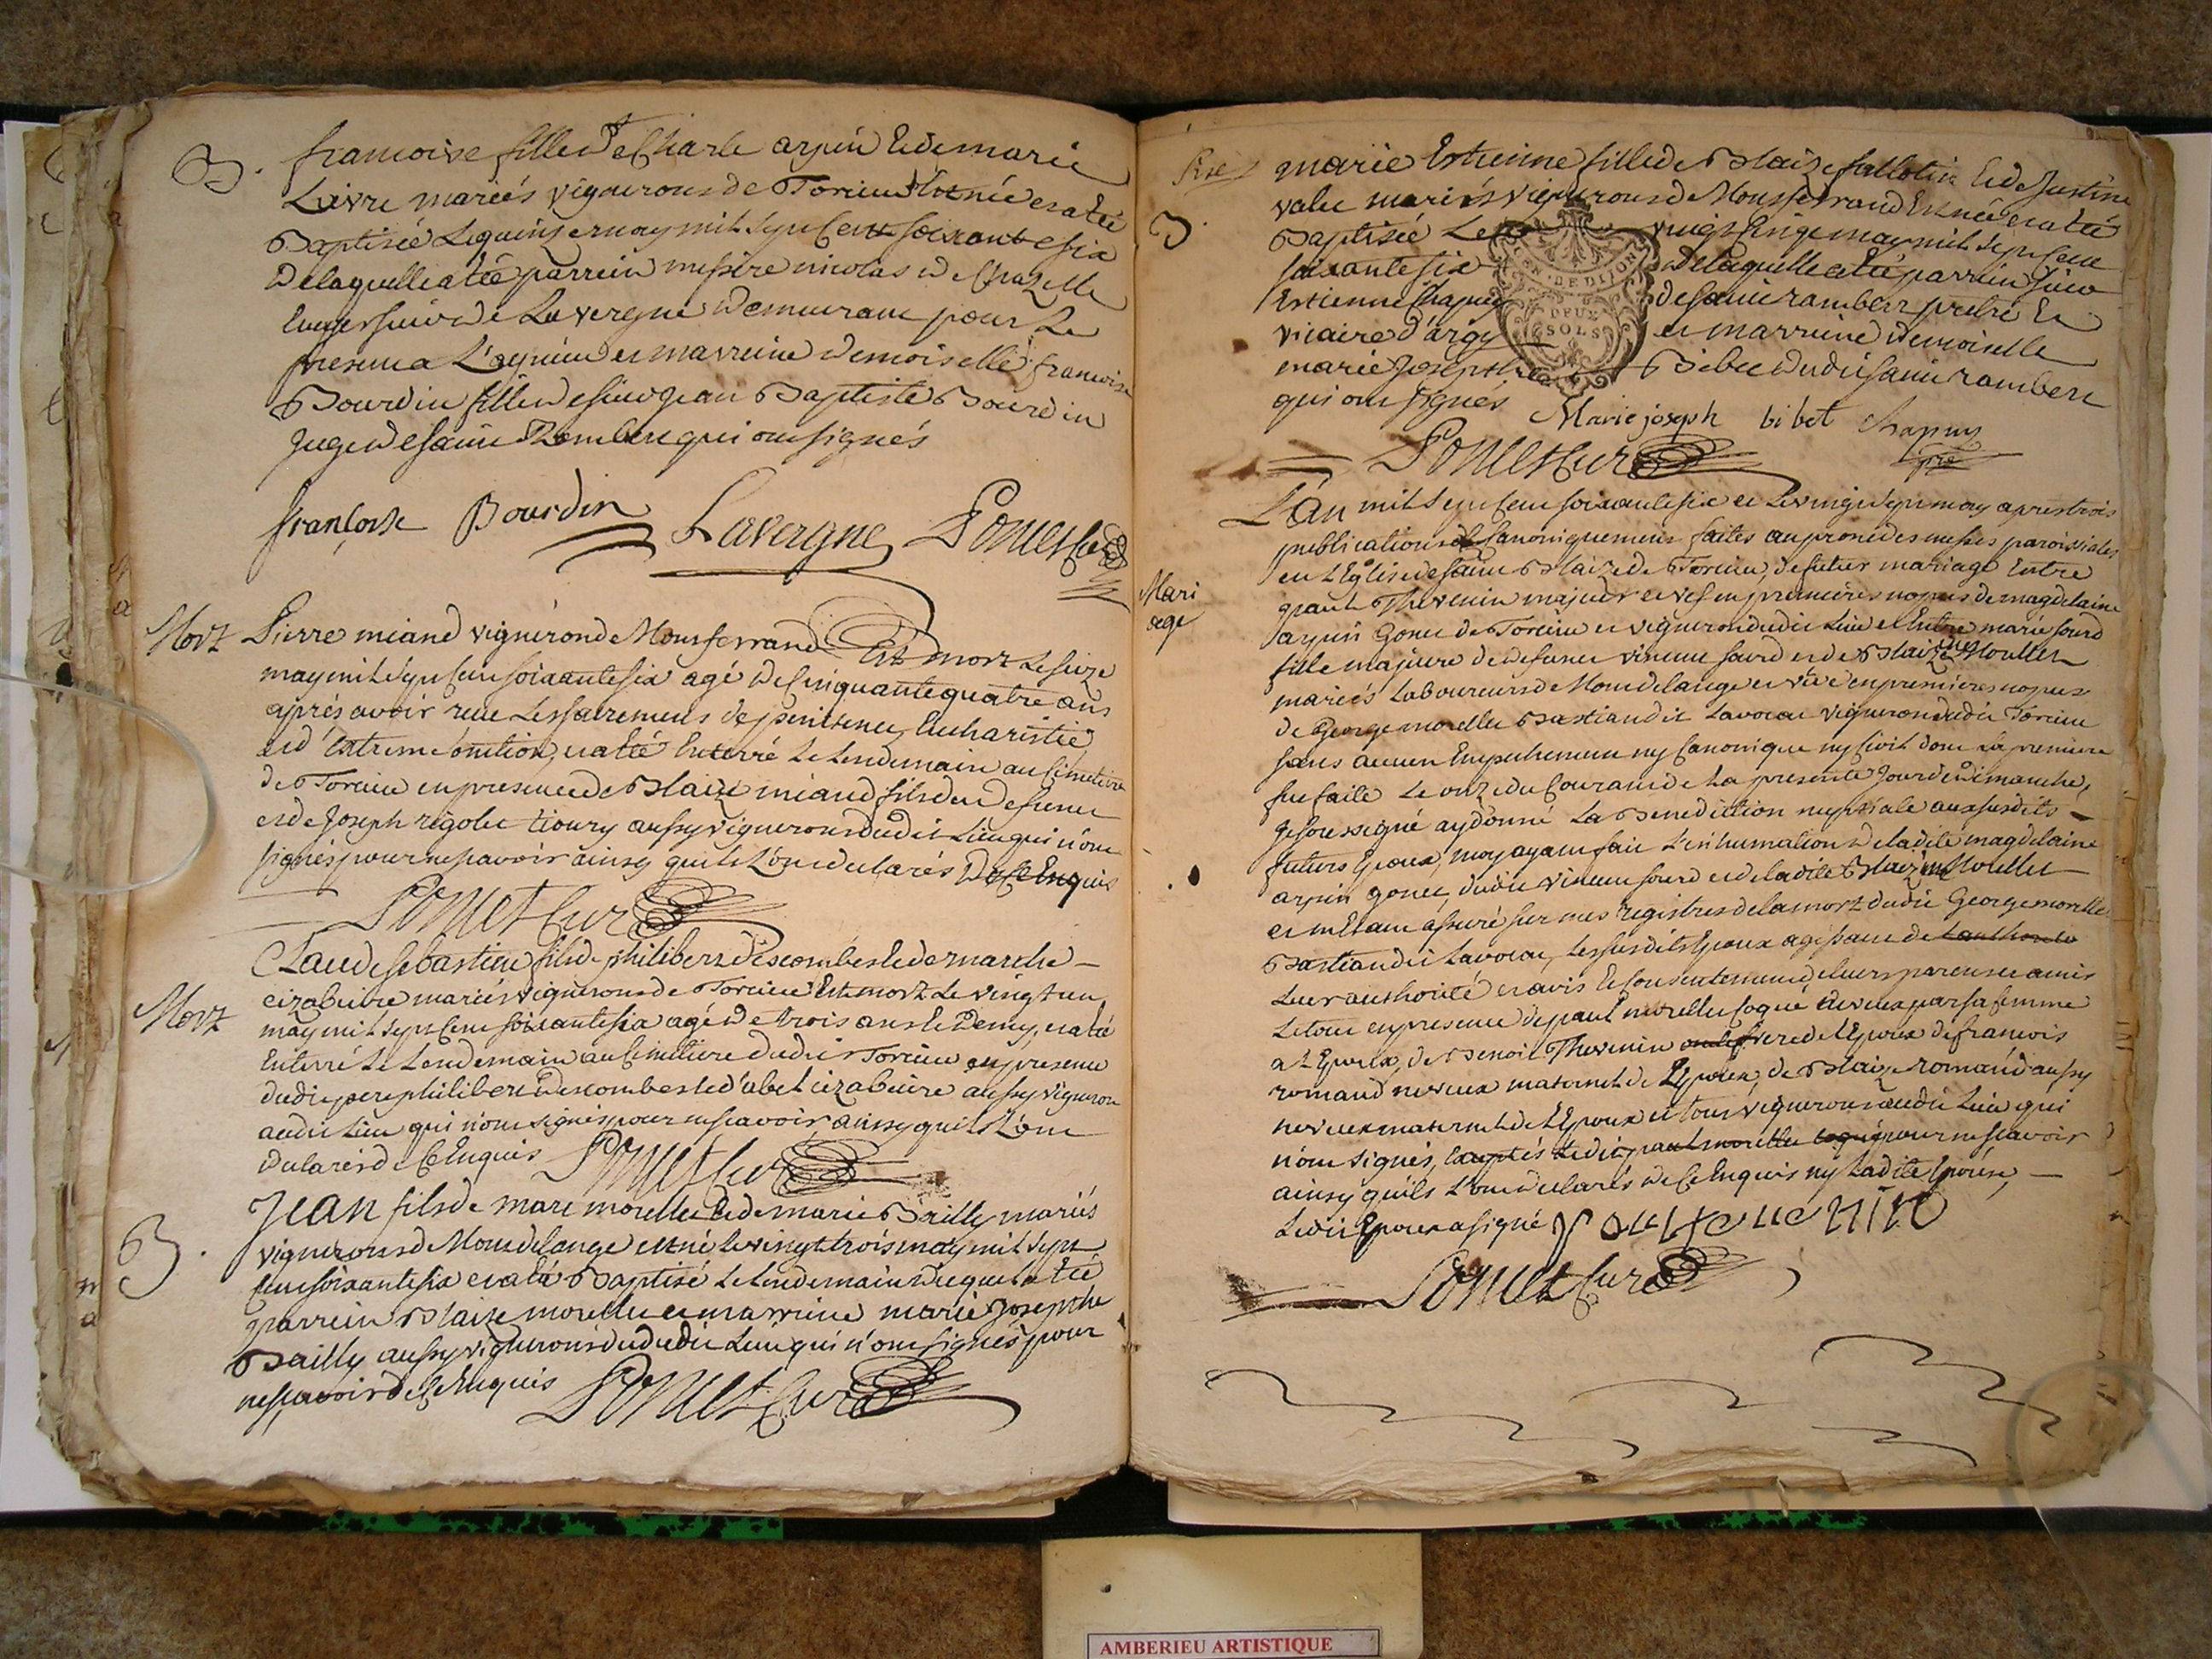 B. francoise fille de Charle arpin et de marie
Laivre mariés vignerons de Torcieu est née et a été
Baptisée le quinze may mil sept cent soixante six
de laquelle a été parrein messire nicolas de Chazelle
ecuyer sieur de Lavergne demeurant pour le
present a L'agnieu et marreine demoiselle francoise
Bourdin fille de sieur jean Baptiste Bourdin
juge de saint Rambert qui ont signés
françoise Bourdin Lavergne Pomet Curé
Mort Pierre miand vigneron de Monferrand Est mort le seize
may mil sept cent soixante six agé de cinquante quatre ans
aprés avoir receu les sacremens de penitence, Eucharistie
et d'Extreme onction, et a été Enterré le lendemain au cimetiere
de Torcieu en presence de Blaize miand fils du defunct
et de joseph rigolet tioury aussy vignerons dudit lieu qui n'ont
signés pour ne scavoir ainsy quils l'ont declarés de ce Enquis
Pomet Curé
Claude sebastien fils de philibert Descombes et de marthe
Mort cizabuire mariés vignerons de Torcieu Est mort le vingt un
may mil sept cent soixante six agé de trois ans et Demy, et a été
Enterré le lendemain au cimetiere dudit Torcieu en presence
dudit pere philibert Descombes et d'abel cizabuire aussy vigneron
audit lieu qui n'ont signés pour ne scavoir ainsy quils l'ont
declarés de ce Enquis Pomet Curé
B. Jean fils de marc morellet et de marie Bailly mariés
vignerons de Mondelange est né le vingt trois may mil sept
cent soixante six et a été Baptisé le lendemain duquel a été
parrein Blaize morellet et marreine marie josephe
Bailly aussy vignerons dududit lieu qui n'ont signés pour
ne scavoir de ce Enquis Pomet Curé
marie Estienne fille de Blaize fallotin et de justine
valet mariés vignerons de Monsferrand Est née et a été
B. Baptisée le vingt cinq may mil sept cent
soixante six de laquelle a été parrein sieur
Estienne Chapuy de saint rambert pretre et
vicaire d'argy et marreine demoiselle
marie josephe Bibet dudit saint rambert
qui ont signés Marie joseph bibet Chapuy
Pomet Curé ptre
GEN. DE DIJON
DEUX
SOLS
L'an mil sept cent soixante six et le vingt sept may apres trois
publications canoniquement faites au prone des messes paroissiales
en L'Eglise de saint Blaize de Torcieu, de futur mariage Entre
Mari
age
paul Thevenin majeur et vef en premieres nopces de magdelaine
arpin gonet de Torcieu et vigneron dudit lieu et Entre marie sourd
fille majeure de defunct vincent sourd et de Blaizine Moullet
mariés laboureurs de Mondelange et vve en premieres nopces
de George morellet Bastian dit Lavocat vigneron dudit Torcieu
sans aucun Empechement ny canonique ny civil dont la premiere
fut faite le onze du courant de la presente jour de Dimanche,
je soussigné ay donné La Benediction nuptiale aux susdits
futurs Epoux, moy ayant fait L'inhumation de ladite magdelaine
arpin gonet, dudit vincent sourd et de ladite Blaizine Moullet
et m'Etant assuré sur mes registres de la mort dudit George morellet
Bastian dit Lavocat, les susdits Epoux agissant de l'authorite
leur authorité et avis et consentement de leurs parens et amis
le tout en presence de paul morellet coque neveux par sa femme
a L'Epoux, de Benoit Thevenin frere de L'Epoux de francois
romand neveux maternel de L'Epoux, de Blaize romand aussy
neveux maternel de L'Epoux et tous vignerons audit lieu qui
n'ont signés, Exceptés ledit paul morellet coque pour ne scavoir
ainsy quils l'ont declarés de ce Enquis ny ladite Epouse,
Ledit Epoux a signé poul tevenin
Pomet Curé
AMBERIEU ARTISTIQUE